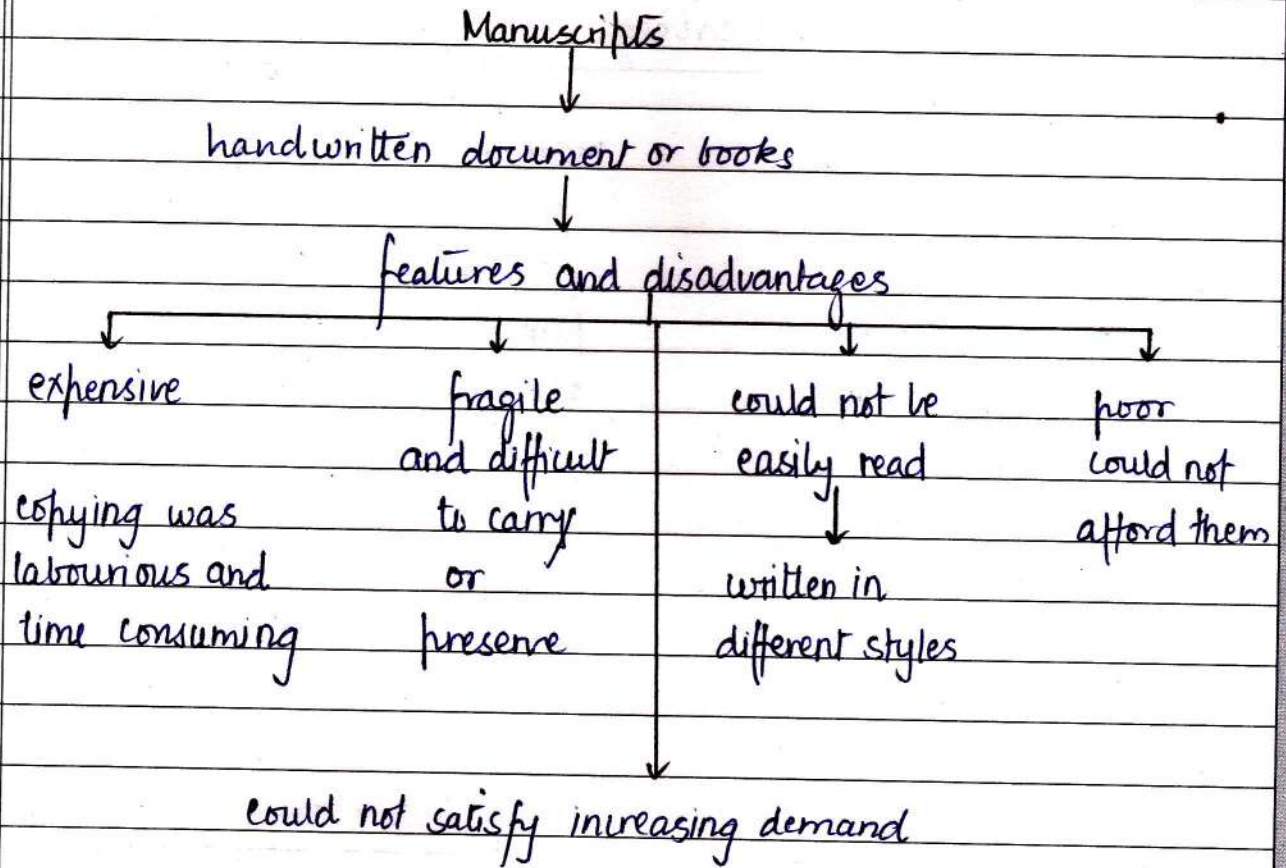 Manuscripts
handwritten document or books
features and disadvantages
expensive
copying was
labourious and
time consuming
fragile
and difficult
to carry
or
preserve
could not be
easily read
written in
different styles
poor
could not
afford them
could not satisfy increasing demand